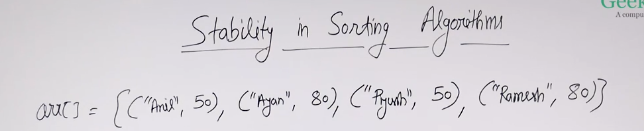 Geek
A compu
Stability in Sorting Algorithms
arr[] = {("Anil", 50), ("Ayan", 80), ("Piyush", 50), ("Ramesh", 80)}